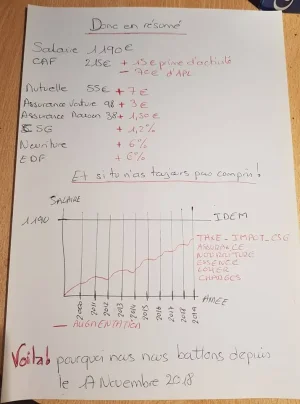 Donc en résumé
Salaire 1190€
CAF 215€ + 15€ prime d'activité
- 70€ d'APL
Mutuelle 55€ + 7€
Assurance Voiture 98 + 3€
Assurance Maison 38 + 1,50€
CSG + 1,2%
Nourriture + 6%
EDF + 6%
Et si tu n'as toujours pas compris!
SALAIRE
1190 IDEM
TAXE - IMPOT - CSG
ASSURANCE
NOURRITURE
ESSENCE
LOYER
CHARGES
ANNEE
2000 2011 2012 2013 2014 2015 2016 2017 2018 2019
— AUGMENTATION
Voilà! pourquoi nous nous battons depuis
le 17 Novembre 2018